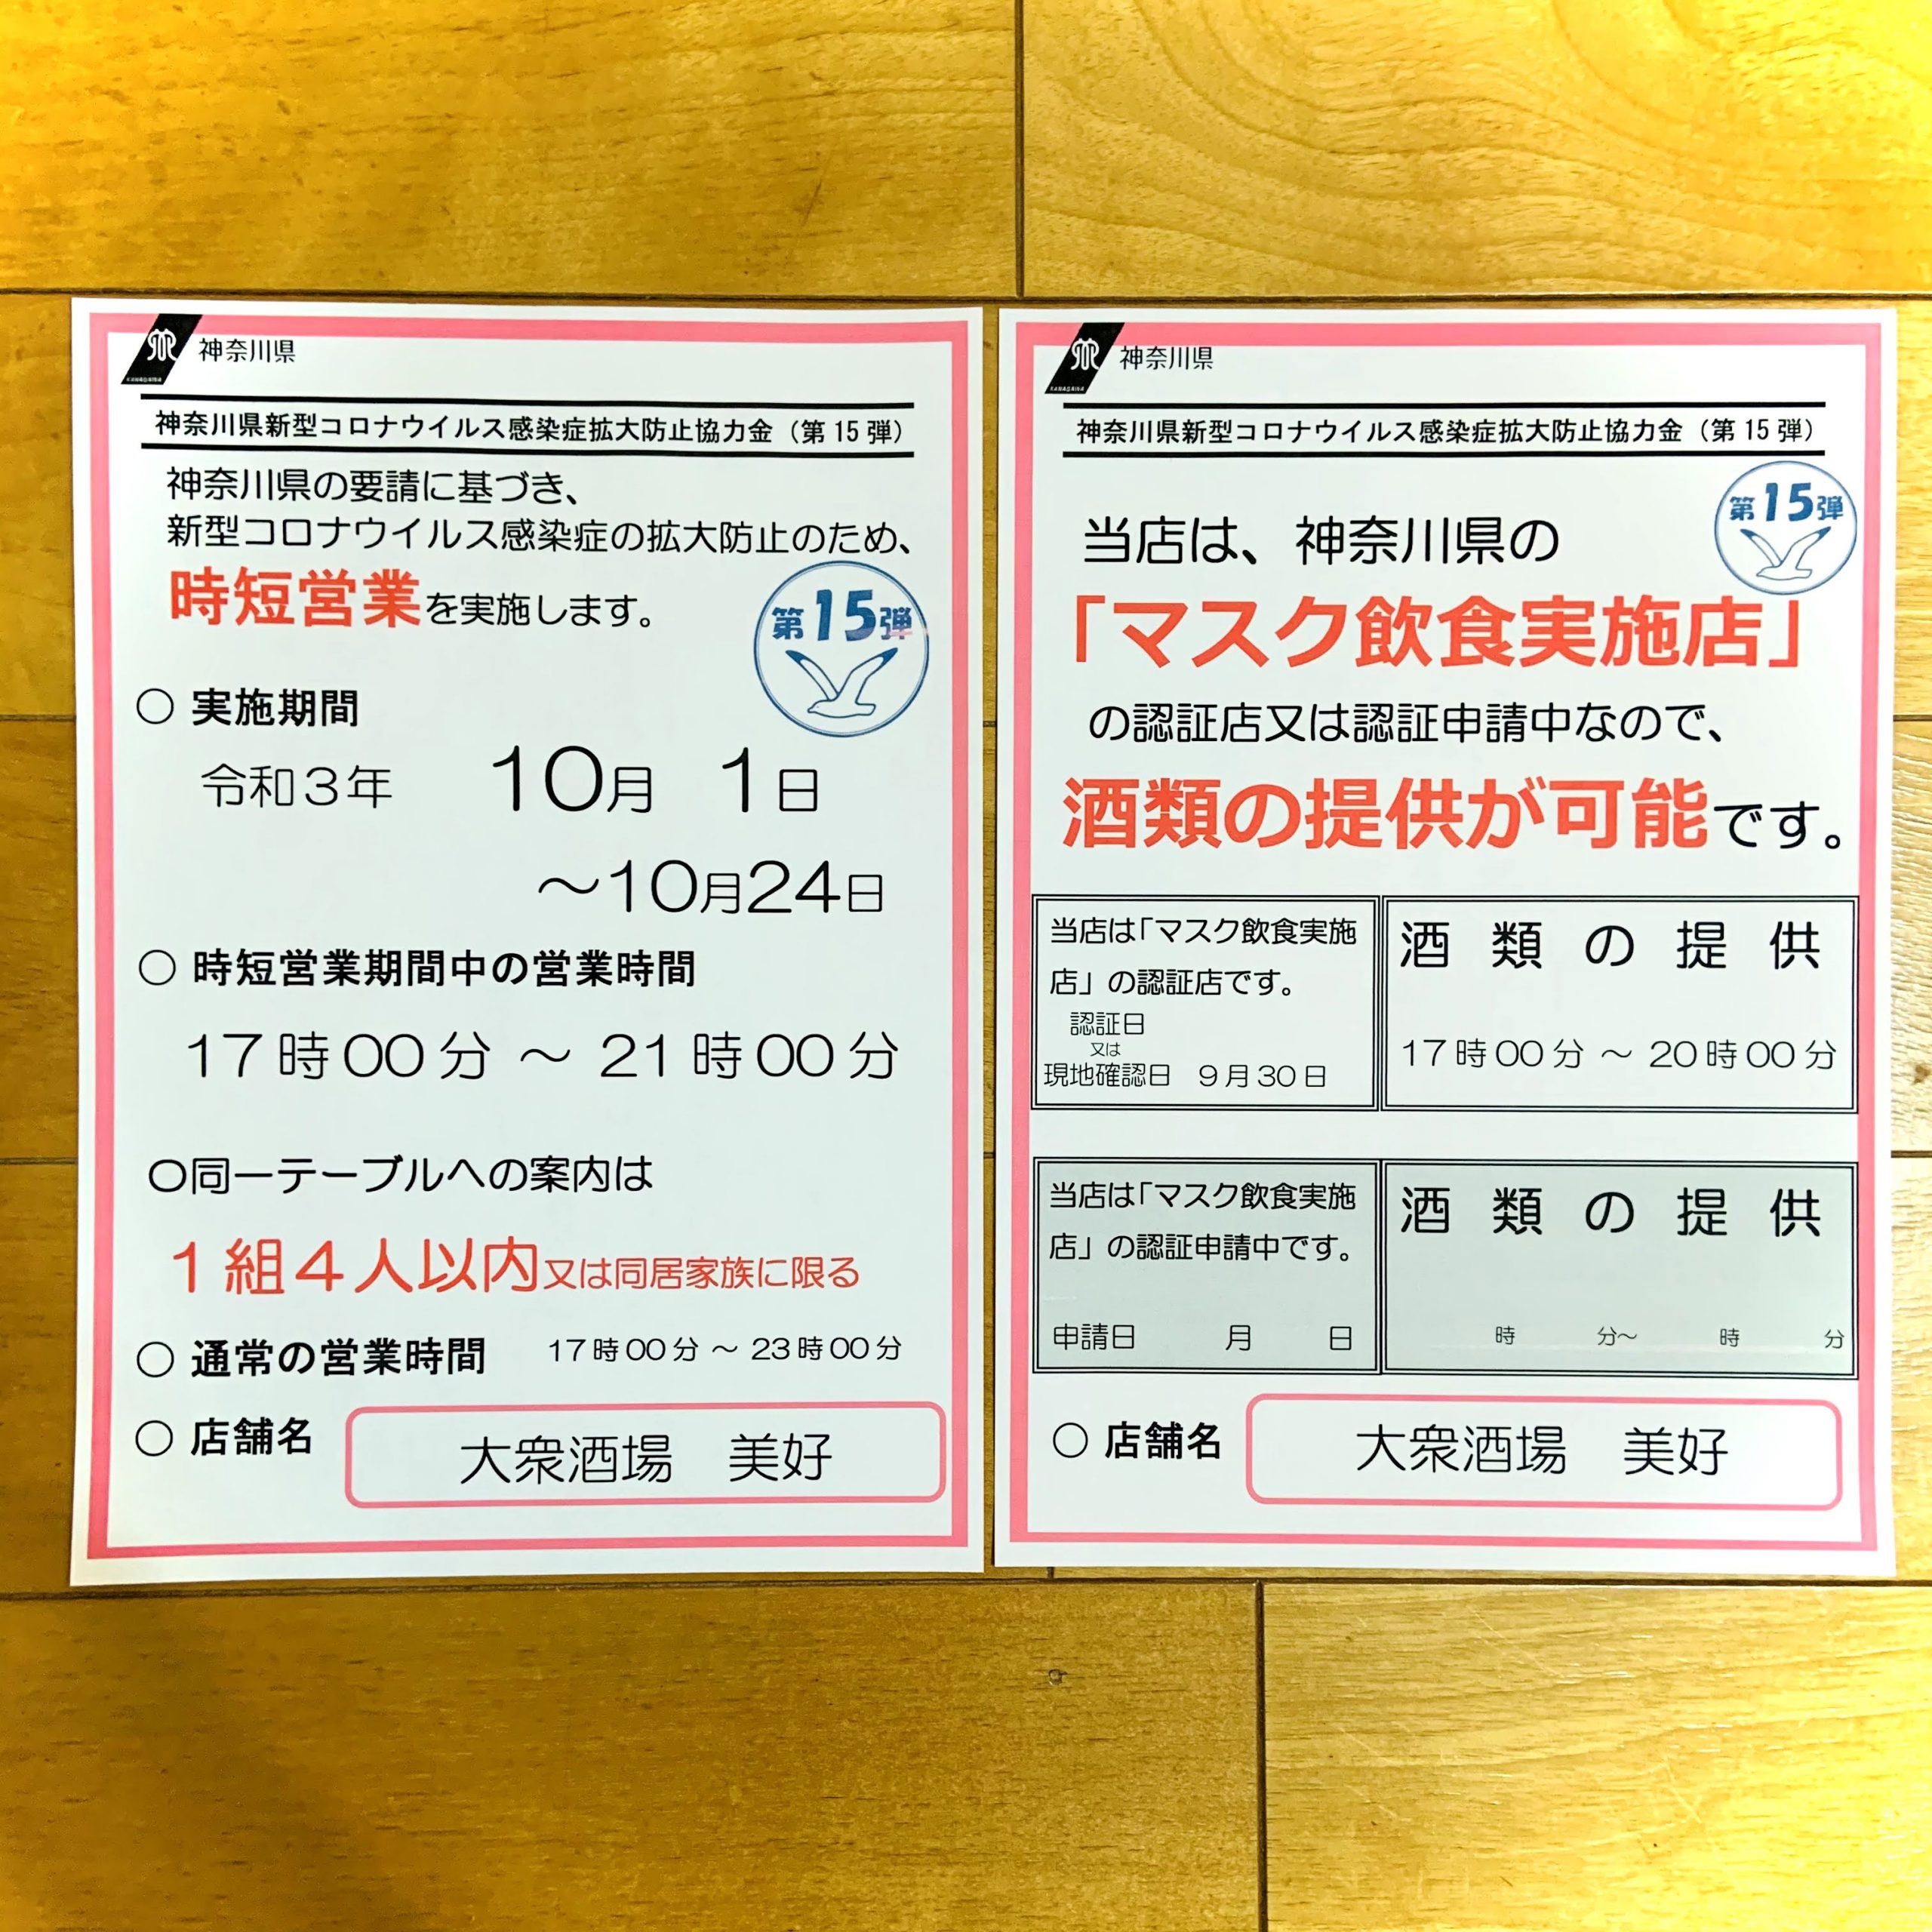 神奈川県
KANAGAWA
神奈川県新型コロナウイルス感染症拡大防止協力金（第15弾）
神奈川県の要請に基づき、
新型コロナウイルス感染症の拡大防止のため、
時短営業を実施します。
第15弾
○ 実施期間
令和3年 10月 1日
～10月24日
○ 時短営業期間中の営業時間
17時00分 ～ 21時00分
○同一テーブルへの案内は
1組4人以内又は同居家族に限る
○ 通常の営業時間 17時00分 ～ 23時00分
○ 店舗名 大衆酒場 美好
神奈川県
KANAGAWA
神奈川県新型コロナウイルス感染症拡大防止協力金（第15弾）
第15弾
当店は、神奈川県の
「マスク飲食実施店」
の認証店又は認証申請中なので、
酒類の提供が可能です。
当店は「マスク飲食実施
店」の認証店です。
認証日
又は
現地確認日 9月30日
酒類の提供
17時00分 ～ 20時00分
当店は「マスク飲食実施
店」の認証申請中です。
申請日 月 日
酒類の提供
時 分～ 時 分
○ 店舗名 大衆酒場 美好